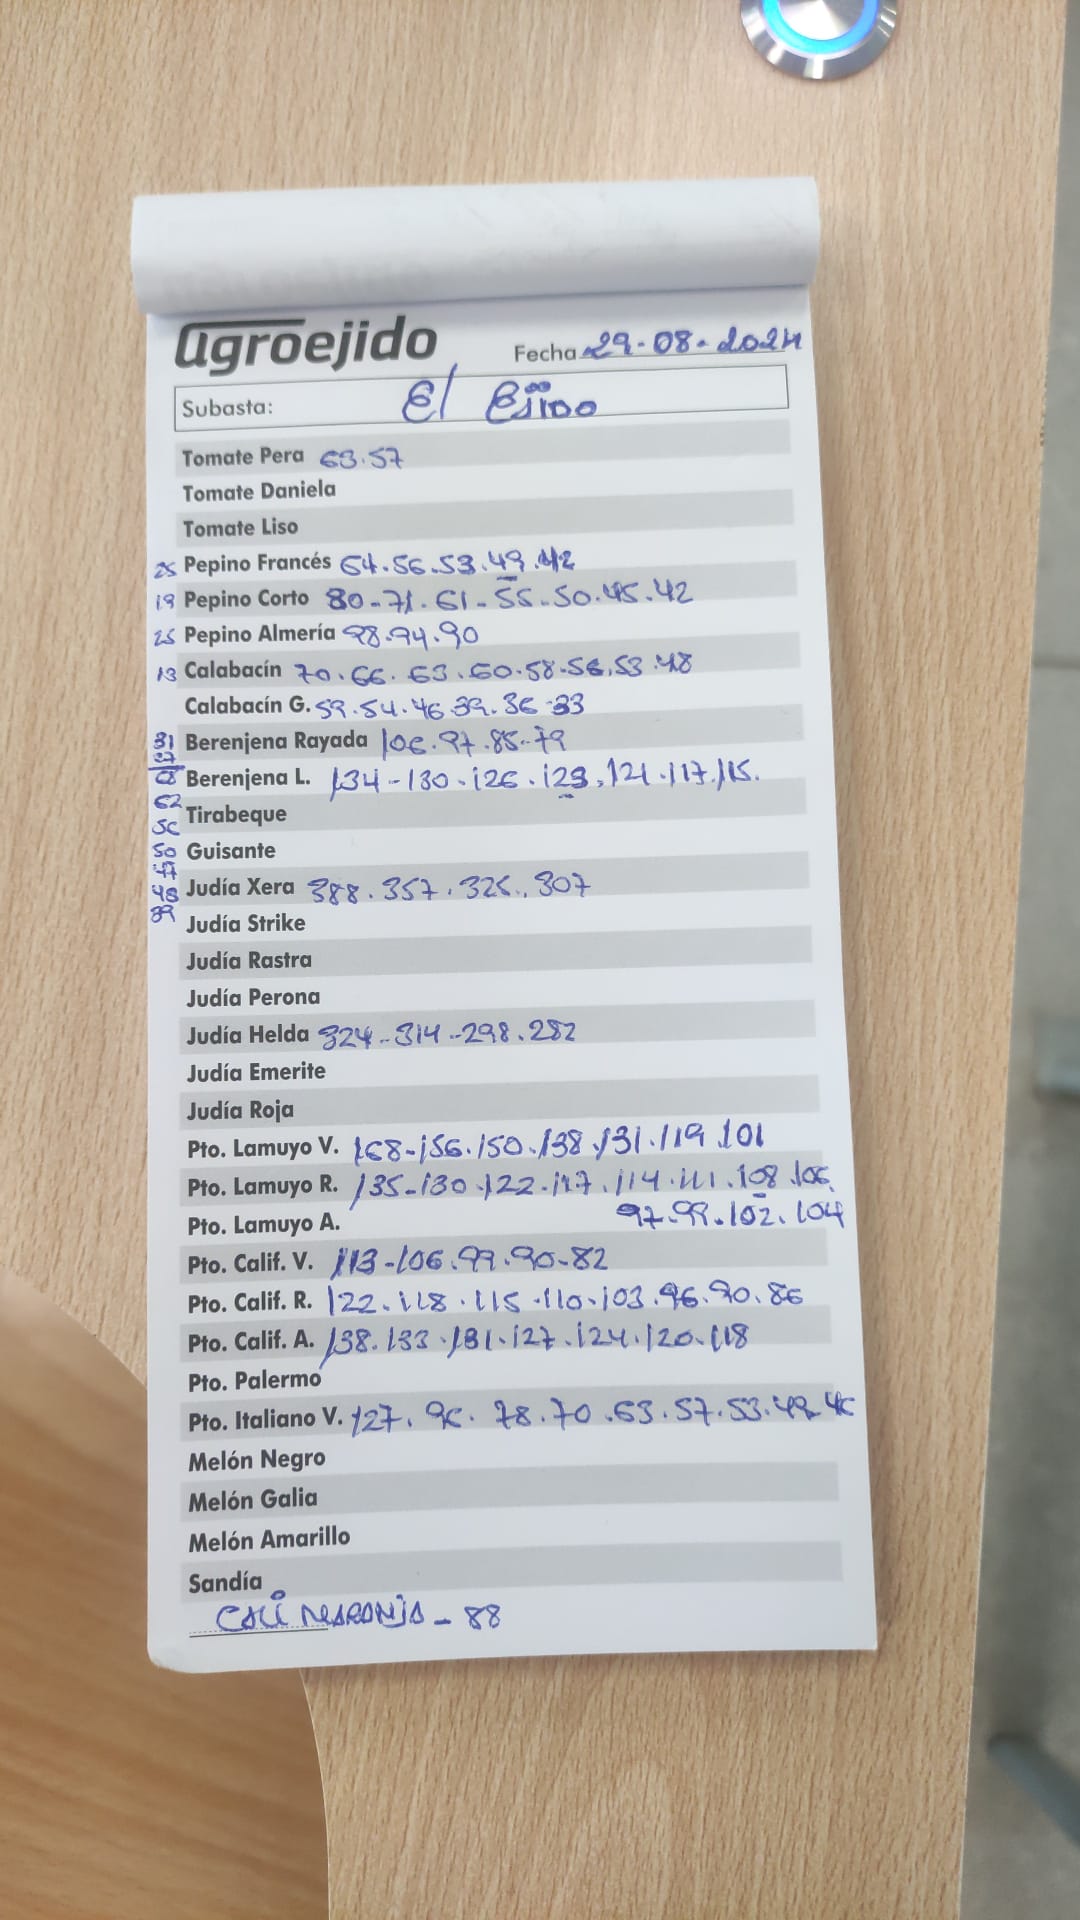 agroejido Fecha 29-08-2024
Subasta: El Ejido
Tomate Pera 63.57
Tomate Daniela
Tomate Liso
25 Pepino Francés 64.56.53.49.42
19 Pepino Corto 80-71.61-55-50.45.42
25 Pepino Almería 98.94.90
13 Calabacín 70.66.63.60.58.56.53.48
Calabacín G. 59.54.46.39.36-33
31 Berenjena Rayada 106.97.85-79
37
68 Berenjena L. 134-130.126.123.121.117.115.
62
Tirabeque
56
50 Guisante
47
48 Judía Xera 388.357.326.307
39
Judía Strike
Judía Rastra
Judía Perona
Judía Helda 324-314-298.282
Judía Emerite
Judía Roja
Pto. Lamuyo V. 168-156.150.138.131.119.101
Pto. Lamuyo R. 135-130.122.117.114.111.108.106.
Pto. Lamuyo A. 97.99.102.104
Pto. Calif. V. 113-106.99.90-82
Pto. Calif. R. 122.118.115.110.103.96.90.86
Pto. Calif. A. 138.133.131.127.124.120.118
Pto. Palermo
Pto. Italiano V. 127.96.78.70.63.57.53.49.46
Melón Negro
Melón Galia
Melón Amarillo
Sandía
CALI NARANJA - 88